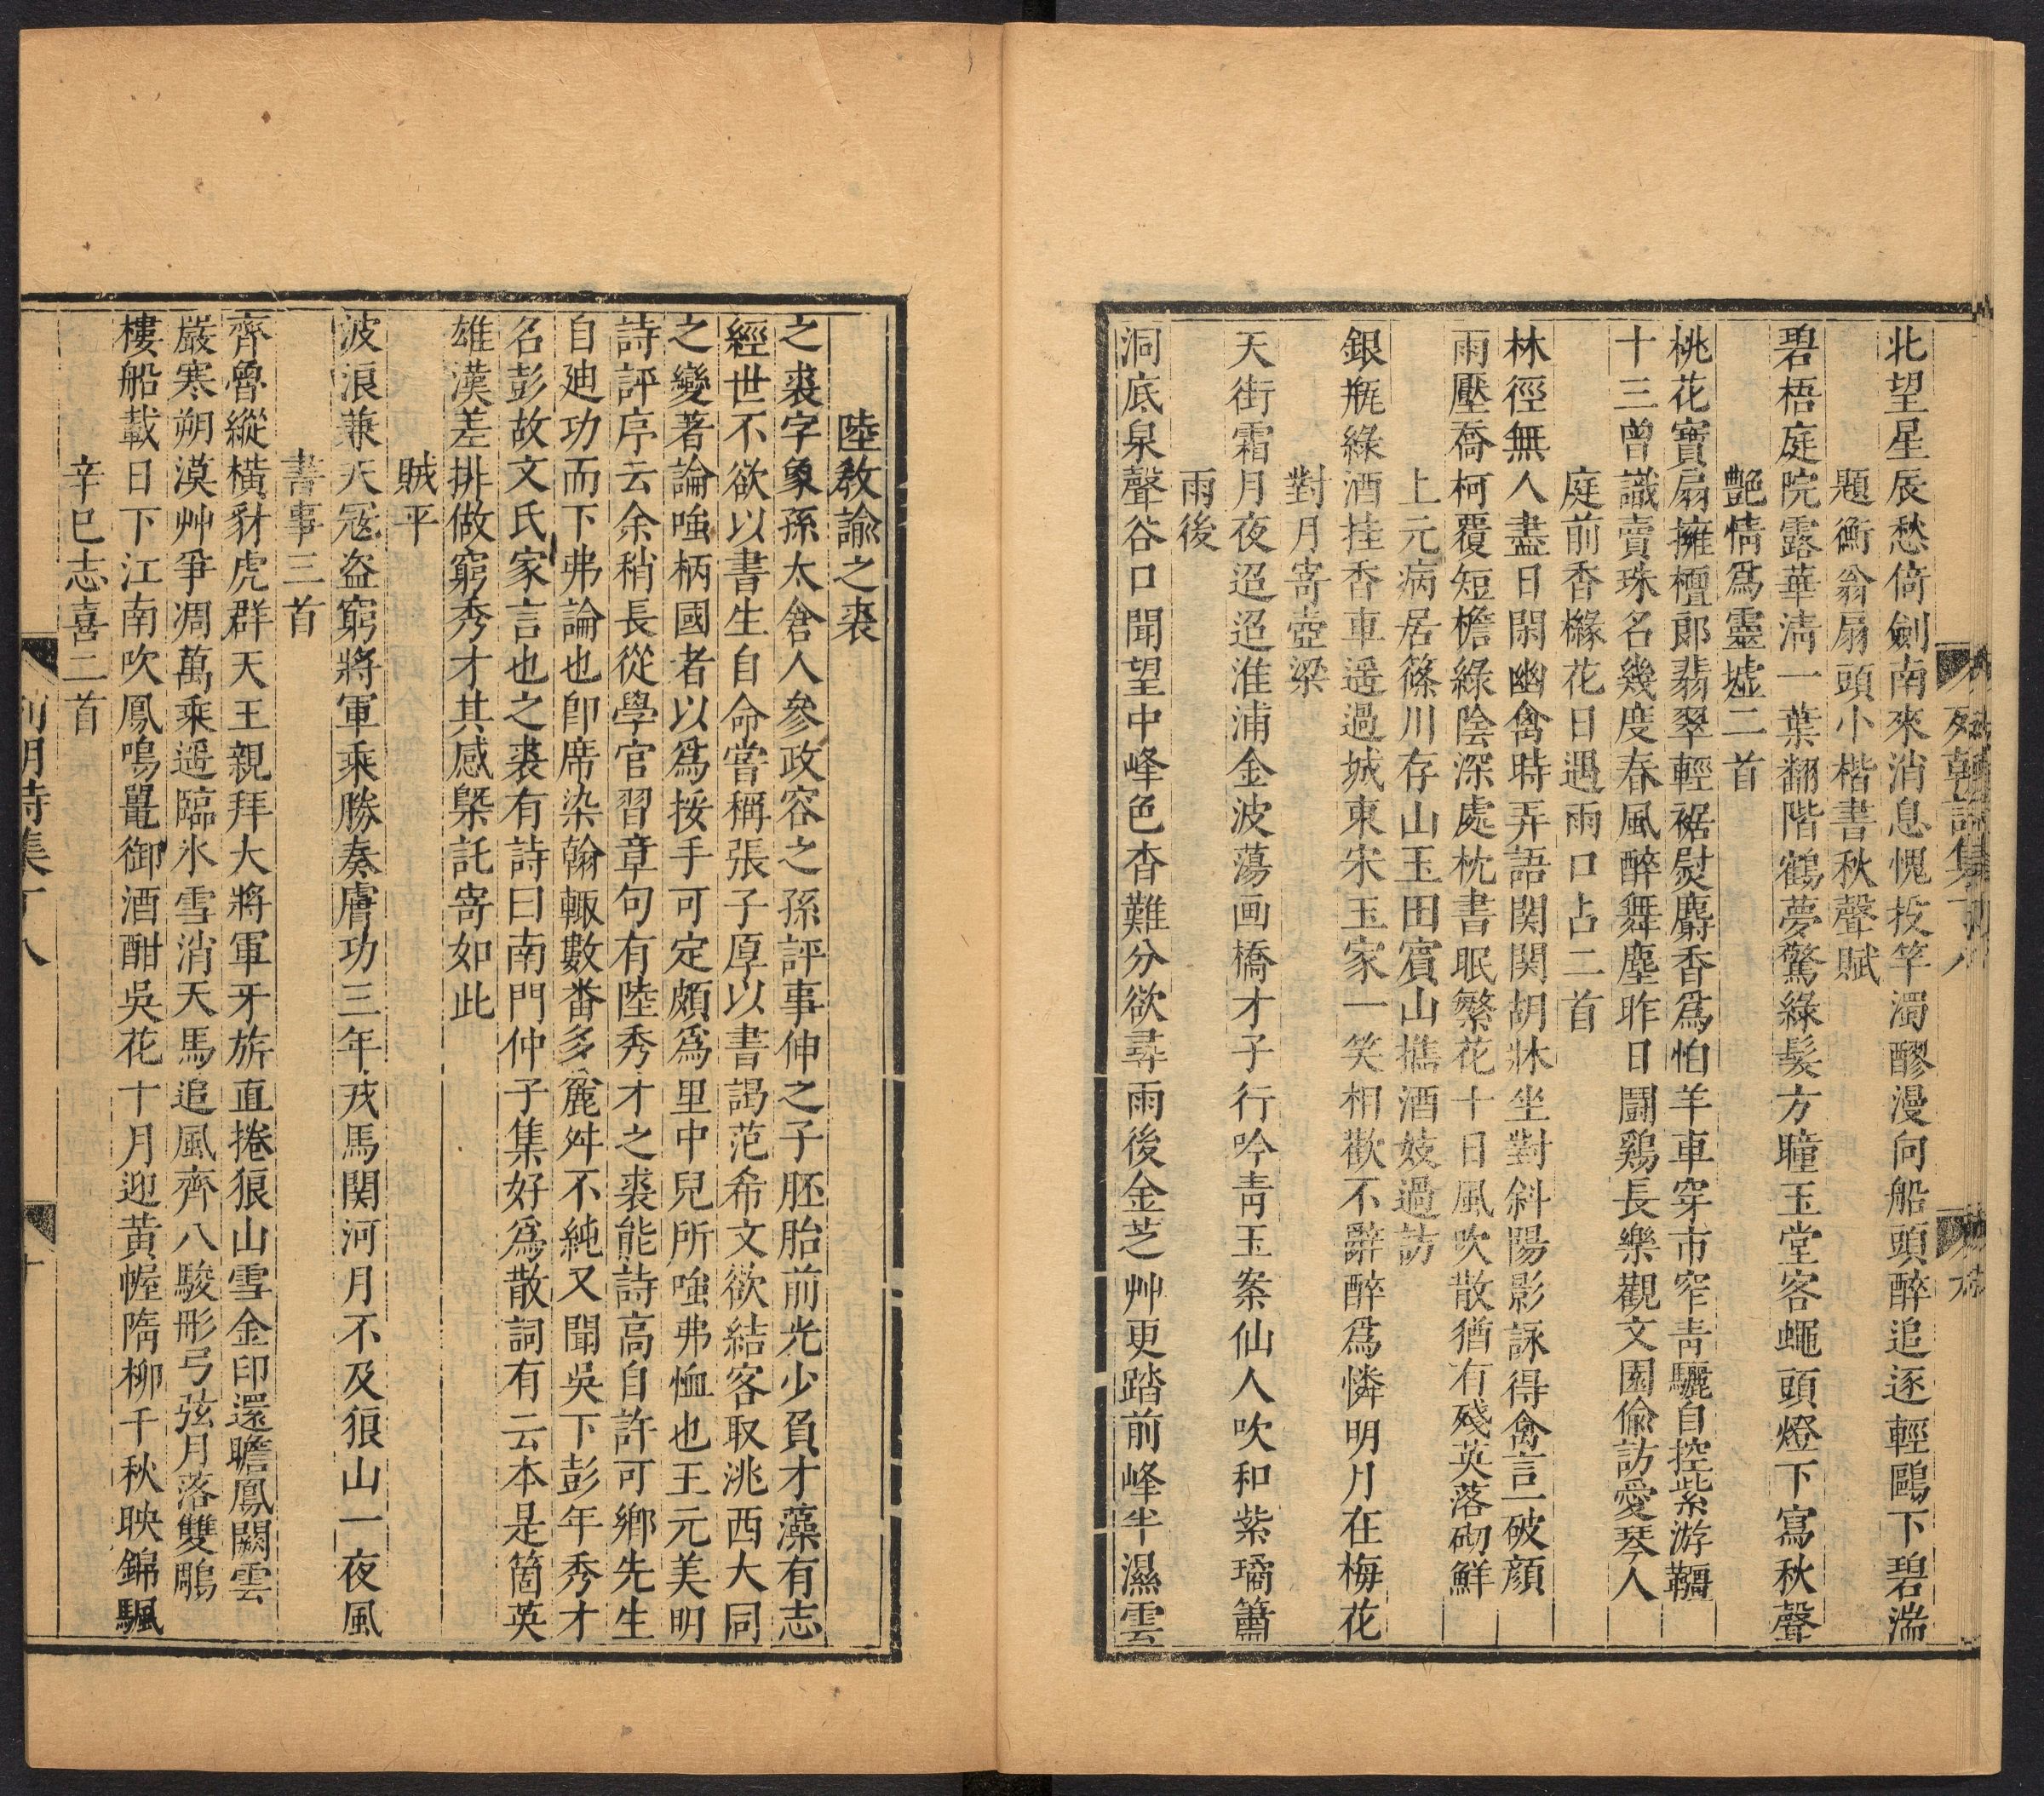 北望星辰愁倚劍南來消息愧投竿濁醪漫向船頭醉追逐輕鷗下碧湍
題衡翁扇頭小楷書秋聲賦
碧梧庭院露華清一葉翻階鶴夢驚綠髪方瞳玉堂客蠅頭燈下寫秋聲
艷情爲靈墟二首
桃花寶扇擁檀郎翡翠輕裾熨麝香爲怕羊車穿市窄青驪自控紫游韁
十三曾識賣珠名幾度春風醉舞塵昨日鬬鷄長樂觀文園偷訪愛琴人
庭前香櫞花日遇雨口占二首
林徑無人盡日閑幽禽時弄語関関胡牀坐對斜陽影詠得禽言一破顔
雨壓喬柯覆短檐綠陰深處枕書眠繁花十日風吹散猶有殘英落砌鮮
上元病居篠川存山玉田賓山攜酒妓過訪
銀瓶綠酒挂香車遥過城東宋玉家一笑相歡不辭醉爲憐明月在梅花
對月寄壺梁
天街霜月夜迢迢淮浦金波蕩画橋才子行吟青玉案仙人吹和紫璚簫
雨後
洞底泉聲谷口聞望中峰色杳難分欲尋雨後金芝艸更踏前峰半濕雲
陸教諭之裘
之裘字象孫太倉人參政容之孫評事伸之子胚胎前光少負才藻有志
經世不欲以書生自命嘗稱張子厚以書謁范希文欲結客取洮西大同
之變著論嗤柄國者以爲按手可定頗爲里中兒所嗤弗恤也王元美明
詩評序云余稍長從學官習章句有陸秀才之裘能詩高自許可鄉先生
自廸功而下弗論也卽席染翰輒數番多麄舛不純又聞吳下彭年秀才
名彭故文氏家言也之裘有詩曰南門仲子集好爲散詞有云本是箇英
雄漢差排做窮秀才其感槩託寄如此
賊平
波浪兼天冦盗窮將軍乘勝奏膚功三年戎馬関河月不及狼山一夜風
書事三首
齊魯縱橫豺虎群天王親拜大將軍牙旂直捲狼山雪金印還瞻鳳闕雲
嚴寒朔漠艸爭凋萬乘遥臨氷雪消天馬追風齊八駿彤弓弦月落雙鵰
樓船載日下江南吹鳳鳴鼉御酒酣吳花十月迎黄幄隋柳千秋映錦颿
辛巳志喜二首